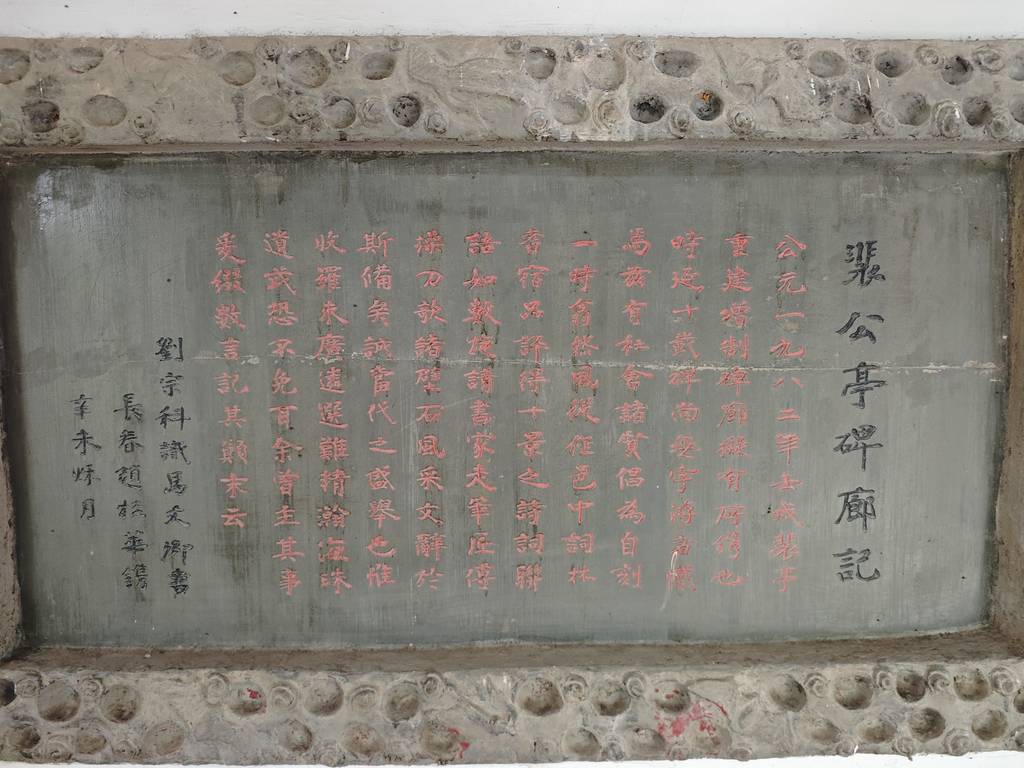 裴公亭碑廊記
公元一九八二年壬戌裴亭
重建增制碑廊擬有所俟也
時延十載碑尚無字游者憾
焉茲有社會諸賢倡為自刻
一時翕然風從任邑中詞林
耆宿品評得十景之詩詞聯
語如數族請書家走筆匠傅
操刀欹諸壁石風采文辭於
斯備矣誠奮代之盛舉也惟
收羅未廣遠選難精瀚海珠
遺或恐不免耳余忝主其事
爰綴數言記其顛末云
劉宗科識馬文卿書
長春趙華鐫
辛未秌月